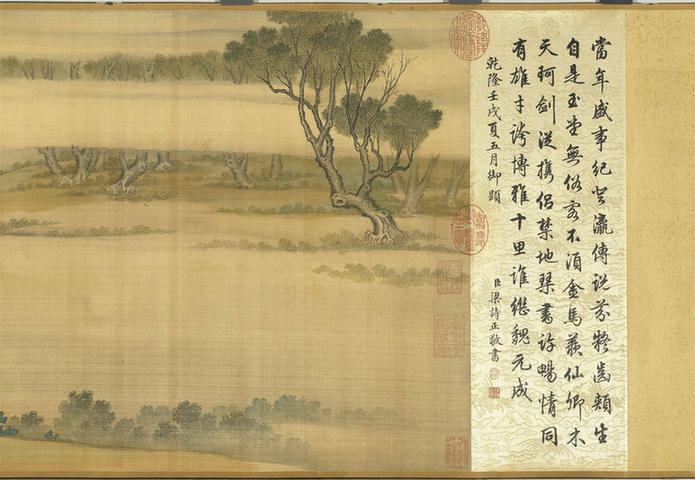 當年盛事紀登瀛傳説芬齒頰生
自是玉堂無俗客不湏金馬羨仙卿木
天珂劍從携侣禁地琴書許暢情同
有雄才誇博雅十思誰繼魏元成
乾隆壬戌夏五月御題
臣梁詩正敬書